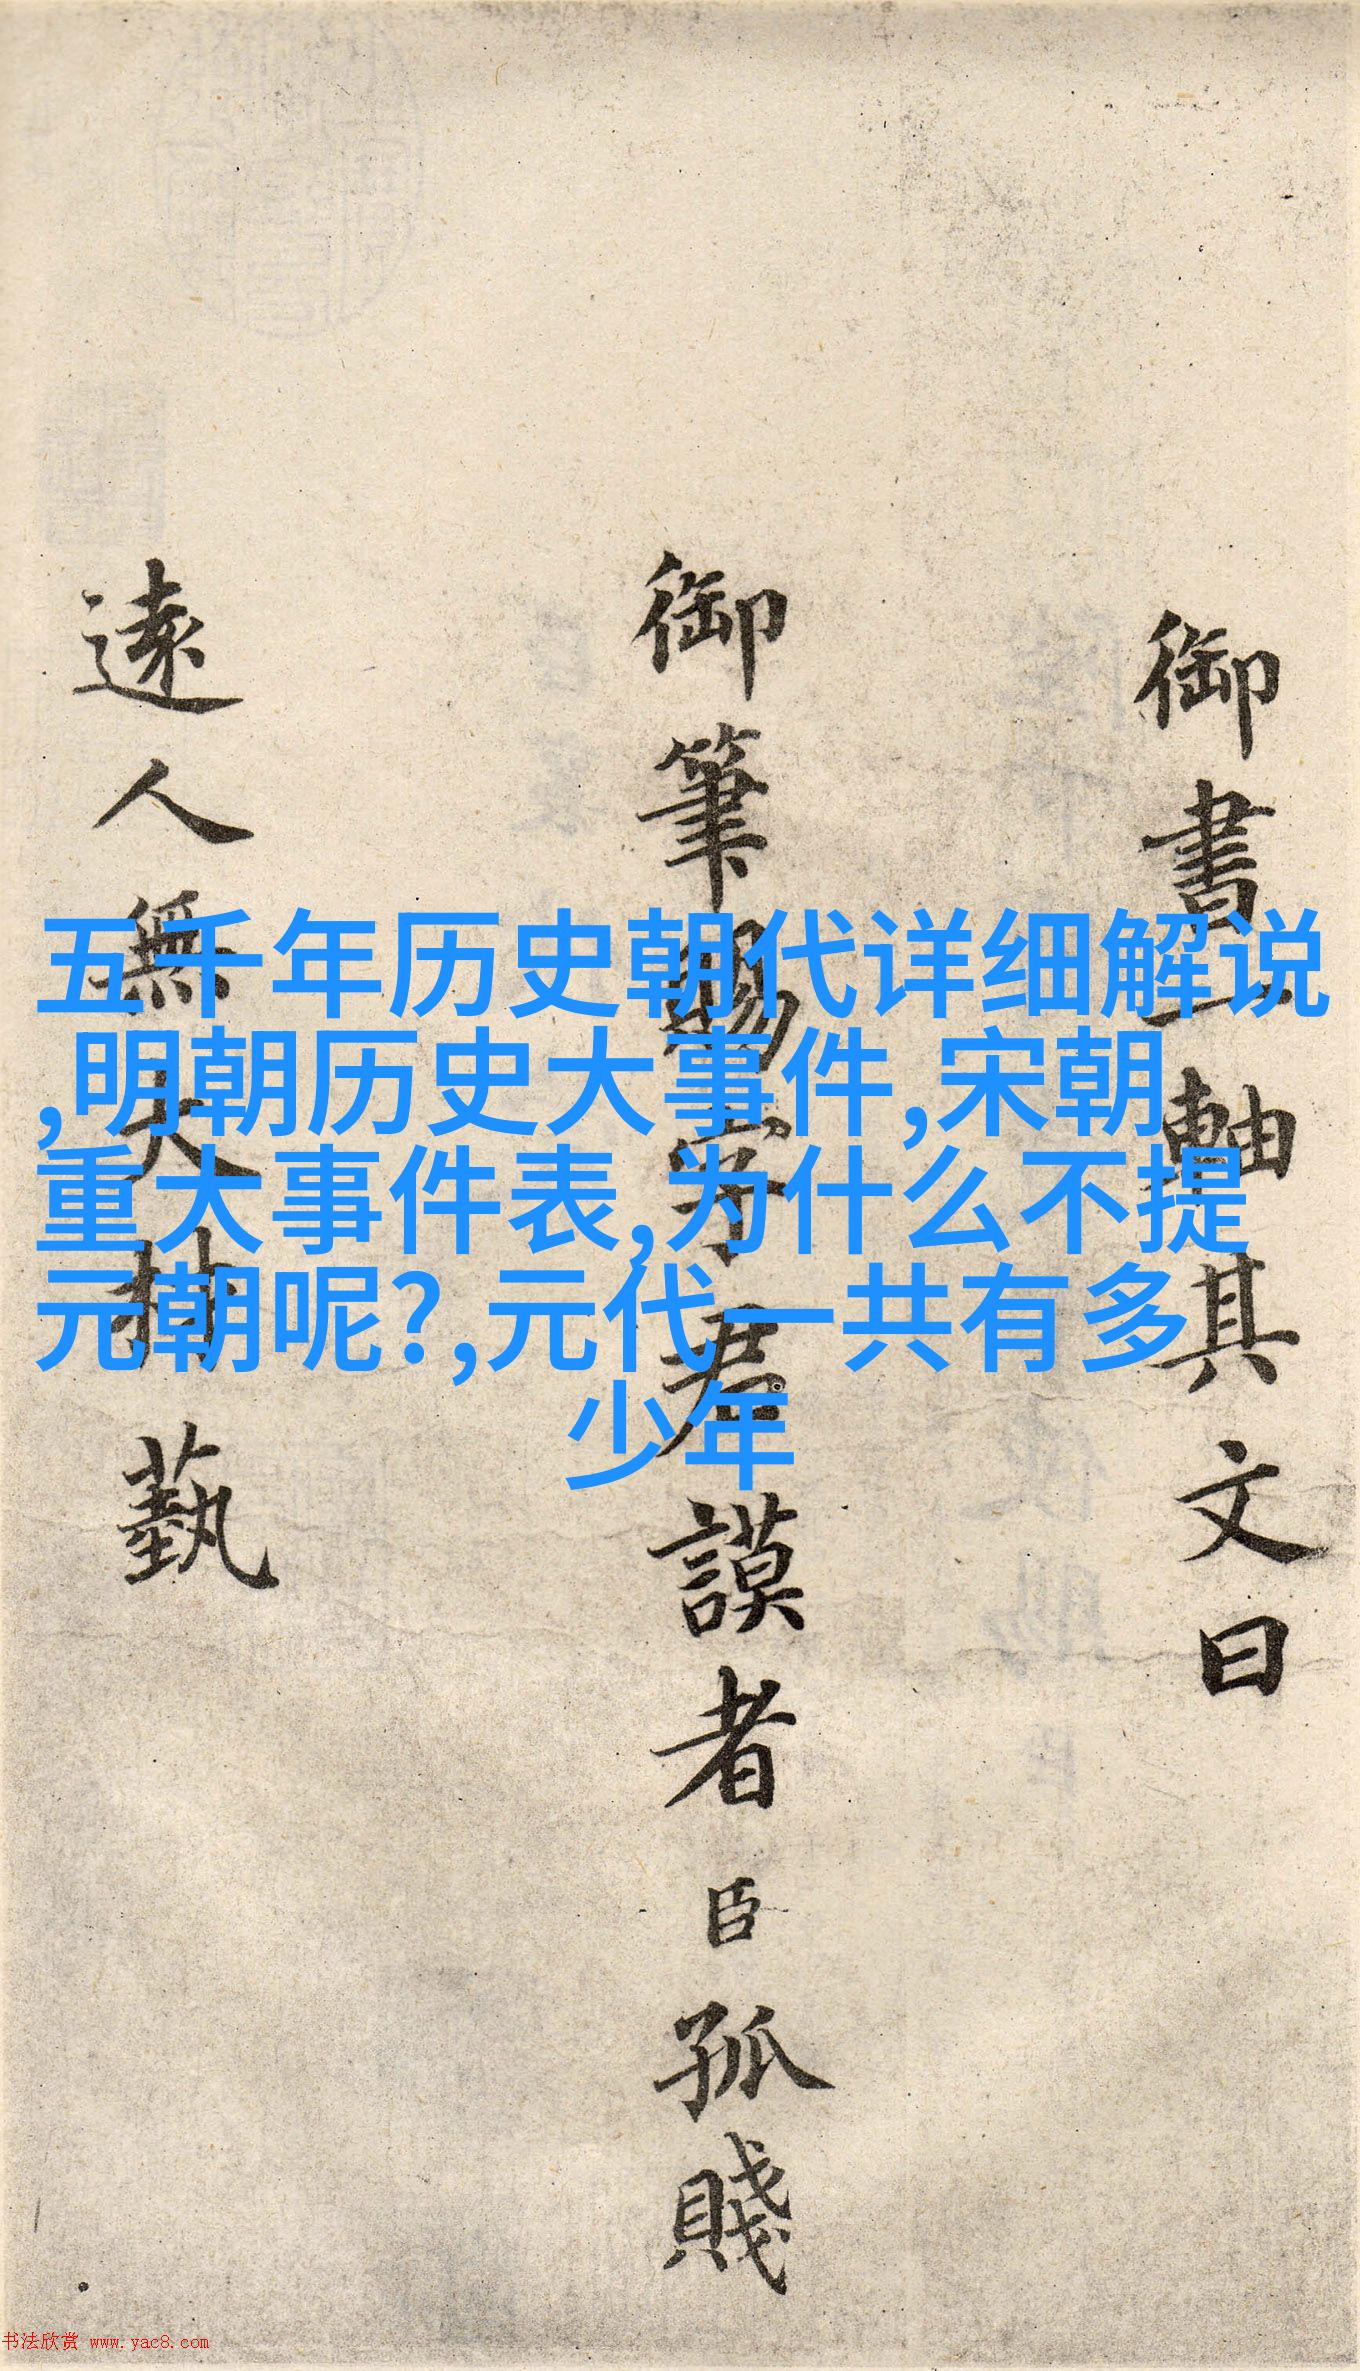 御書一軸其文曰
御筆賜字君謨者臣孤賤
遠人無大材藝
五千年历史朝代详细解说
,明朝历史大事件,宋朝
重大事件表,为什么不提
元朝呢?,元代一共有多
少年
书法欣赏 www.yac8.com